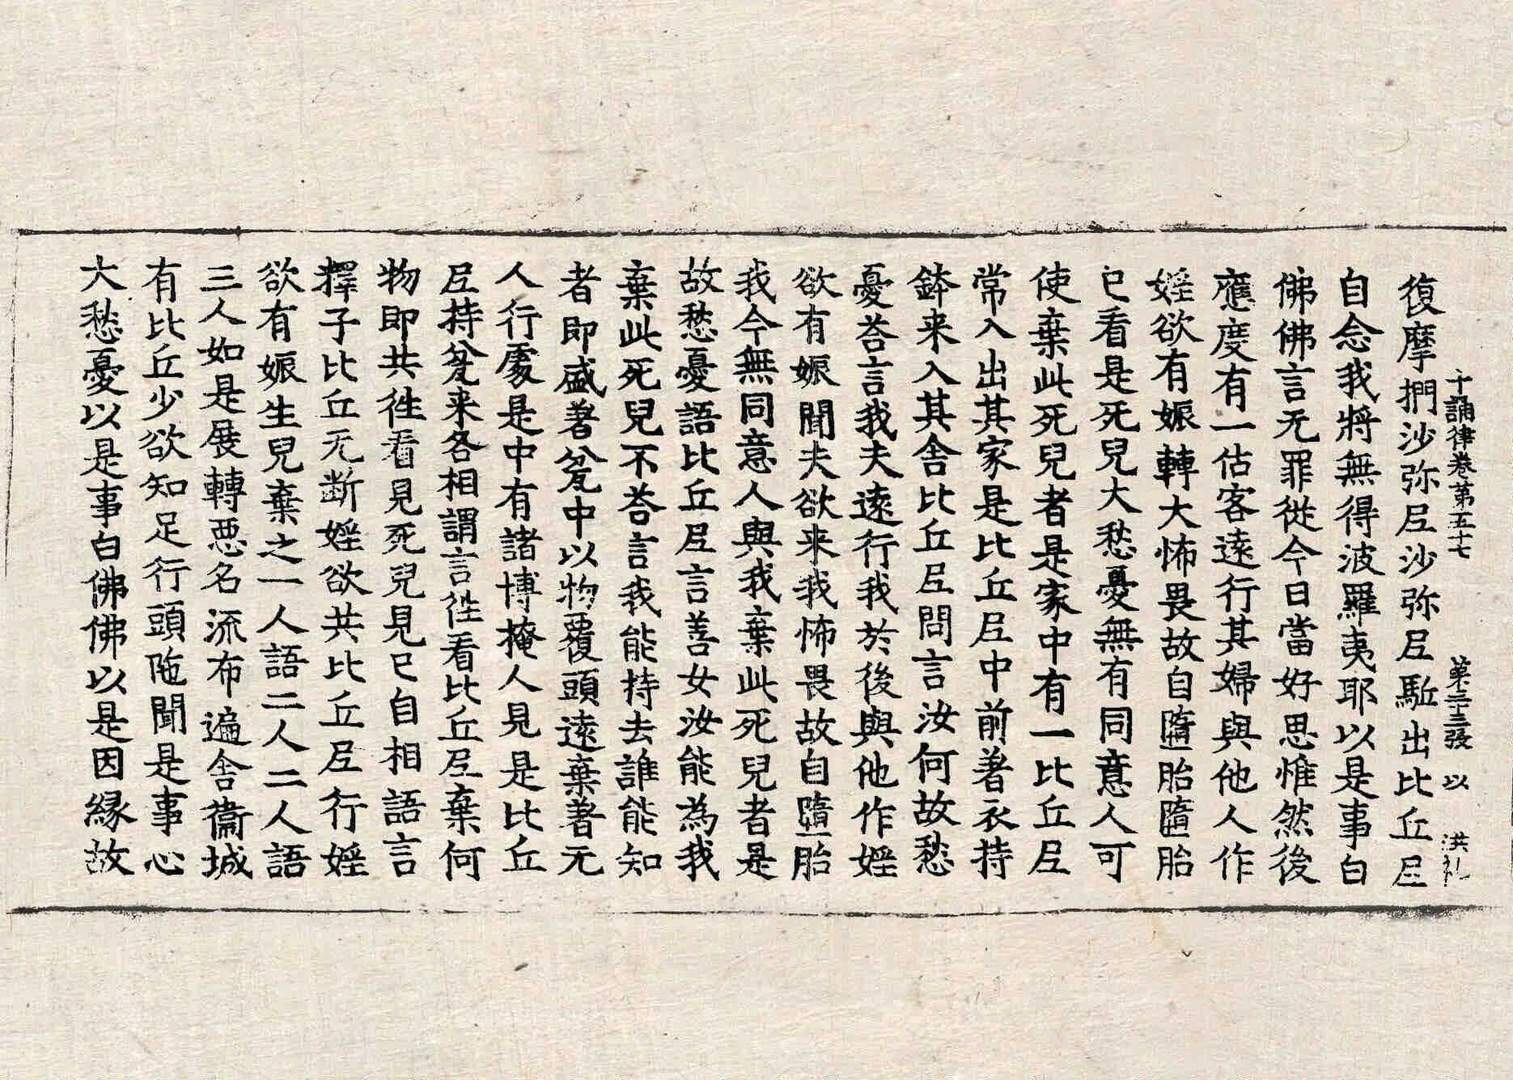 十誦律卷第五十七 第二十三張 以 洪礼
復摩捫沙弥𡰱沙弥𡰱駈出比丘𡰱
自念我將無得波羅夷耶以是事白
佛佛言无罪從今日當好思惟然後
應度有一估客遠行其婦與他人作
婬欲有娠轉大怖畏故自墮胎墮胎
已看是死兒大愁憂無有同意人可
使棄此死兒者是家中有一比丘𡰱
常入出其家是比丘𡰱中前著衣持
鉢来入其舍比丘𡰱問言汝何故愁
憂荅言我夫遠行我於後與他作婬
欲有娠聞夫欲来我怖畏故自墮胎
我今無同意人與我棄此死兒者是
故愁憂語比丘𡰱言善女汝能為我
棄此死兒不荅言我能持去誰能知
者即盛著瓮中以物覆頭遠棄著无
人行處是中有諸博掩人見是比丘
𡰱持瓮来各相謂言徃看比丘𡰱棄何
物即共徃看見死兒見已自相語言
釋子比丘无斷婬欲共比丘𡰱行婬
欲有娠生兒棄之一人語二人二人語
三人如是展轉惡名流布遍舍衞城
有比丘少欲知足行頭陁聞是事心
大愁憂以是事白佛佛以是因緣故